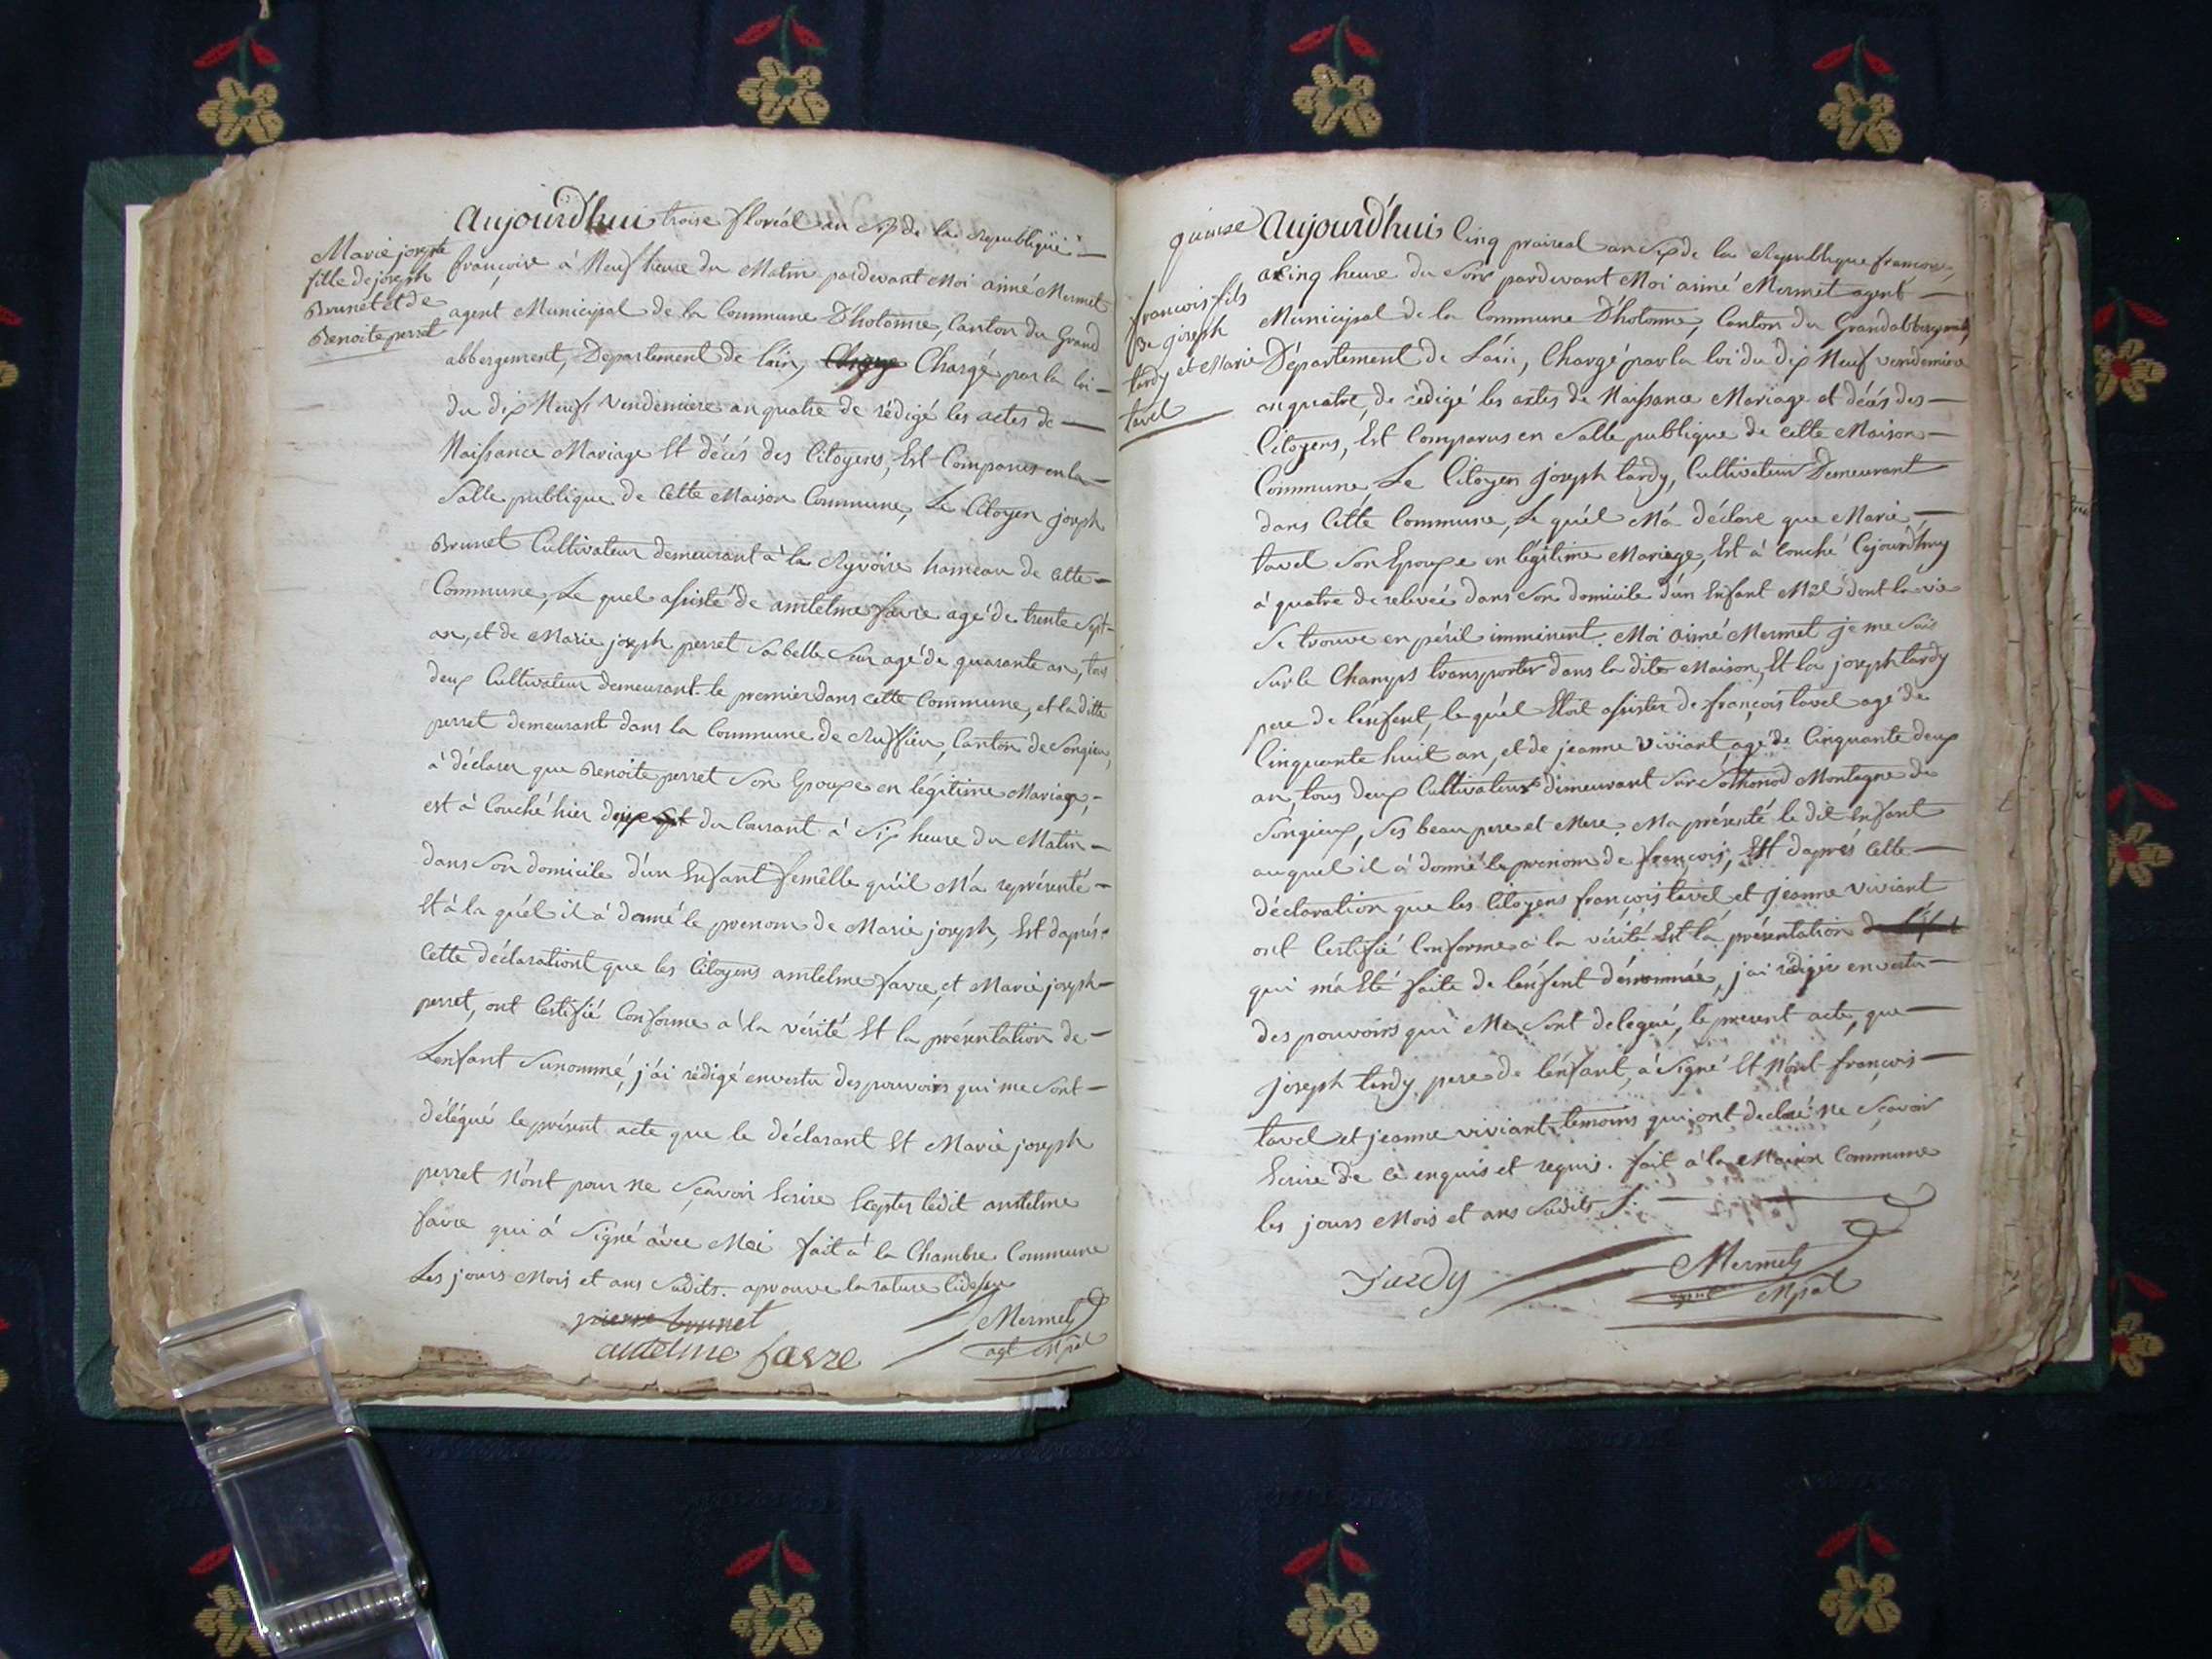 Marie joseph
fille de joseph
Brunet et de
Benoite perret
Aujourd'hui troise floréal an Six de la Republique
françoise à Neuf heure du Matin pardevant Moi aimé Mermet
agent Municipal de la Commune D'hotonne, Canton du Grand
abbergement, Departement de lain, Chargé par la loi
du dix Neuf Vendemiere an quatre de rédigé les actes de
Naissance Mariage Et décés des Citoyens, Est Comparus en la
Salle publique de Cette Maison Commune, Le Citoyen joseph
Brunet Cultivateur demeurant à la Ryvoire hameau de Cette
Commune, Le quel assisté de antelme favre agé de trente Sept
an, et de Marie joseph perret Sa belle Seur agé de quarante an, tous
deux Cultivateur demeurant le premier dans Cette Commune, et la ditte
perret demeurant dans la Commune de Ruffieu, Canton de Songieu,
à déclarer que Benoite perret Son Epouxe en légitime Mariage,
est à Couché hier du Courant à Six heure du Matin
dans Son domicile d'un Enfant femêlle qu'il M'a représenté
Et à la quél il à donné le prenom de Marie joseph, Est daprés
Cette déclarationt que les Citoyens antelme favre, et Marie joseph
perret, ont Certifié Conforme à la vérité Et la présentation de
Lenfant Sunommé, j'ai rédigé envertu des pouvoirs qui me Sont
délégué le présent acte que le déclarant Et Marie joseph
perret N'ont pour ne Sçavoir Ecrire Excepter ledit antelme
favre qui à Signé avec Moi fait à la Chambre Commune
Les jours Mois et ans Sudits. aprouve la rature
pierre brunet
antelme favre
Mermet
agt Mpal
quinse
francois fils
De joseph
tardy et Marie
tavel
Aujourd'hui Cinq praireal an Six de la Republique francoise,
a Cinq heure du Soir pardevant Moi aimé Mermet agent
Municipal de la Commune D'hotonne, Canton du Grandabbergement,
Département de Lain, Chargé par la loi du dix Neuf vendemiere
an quatre, de rédigé les actes de Naissance Mariage et décés des
Citoyens, Est Comparus en Salle publique de cette Maison
Commune Le Citoyen joseph tardy, Cultivateur Demeurant
dans Cette Commune, Le quél M'a déclaré que Marie
tavel Son Epouxe en légitime Mariage, Est à Couché Cejourd'huy
à quatre de relevée dans Son domicile d'un Enfant Mâl dont la vie
Se trouve en péril imminent. Moi aimé Mermet je me Suis
Sur le Champs transporter dans la dite Maison, Et la joseph tardy
pere de l'enfent, le quél Etoit assister de françois tavel agé de
Cinquante huit an, et de jeanne Viviant, agé de Cinquante deux
an, tous deux Cultivateurs dimeurant Sur Sothonod Montagne de
Songieux, Ses beau pere et Mere. Ma présenté le dit Enfant
auquel il à donné le prenom de françois, Est daprés Cette
déclaration que les Citoyens francois tavel et jeanne viviant
ont Certifié Conforme à la vérité Et la présentation
qui m'a Eté faite de lenfent dénommée, j'ai rédigée envertu
des pouvoirs qui Me Sont delegué, le present acte, que
joseph tardy pere de l'enfant, à Signé Et N'ont françois
tavel et jeanne viviant temoins qui ont declaré ne Sçavoir
Ecrire de ce enquis et requis. fait à la Maison Commune
les jours Mois et ans Sudits
Tardy
Mermet
agent Mpal